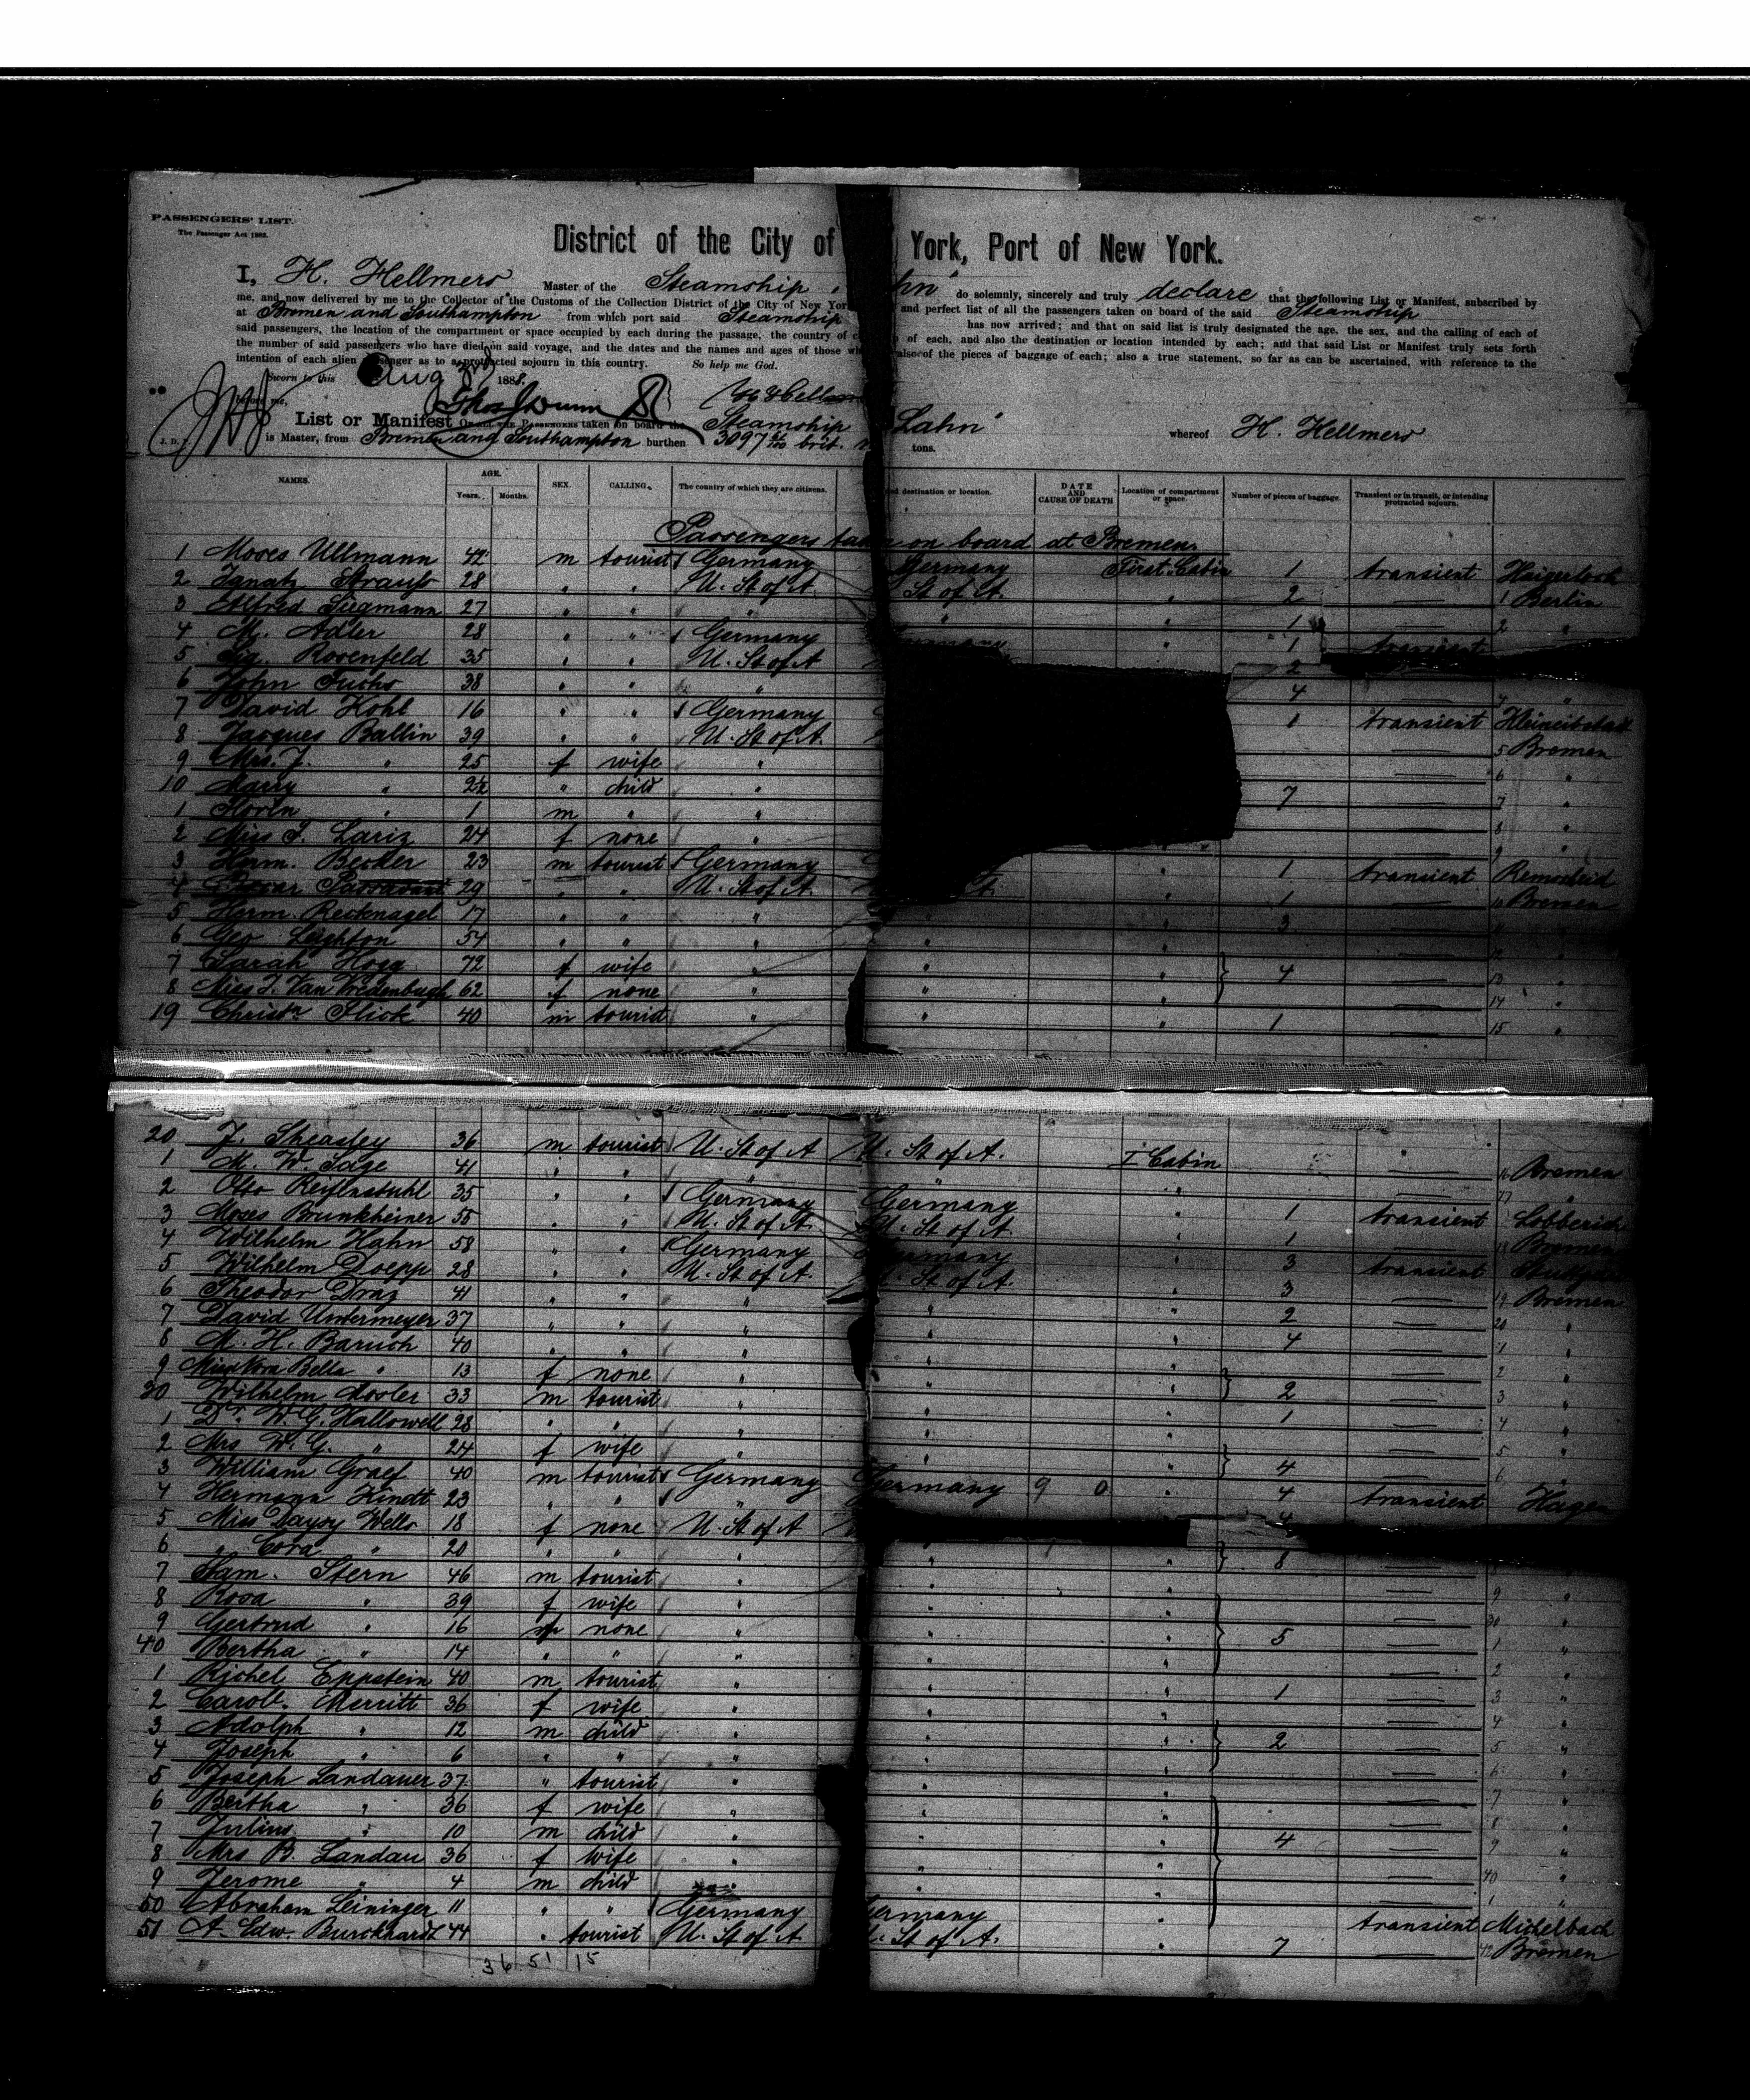 PASSENGERS' LIST.
The Passenger Act 1882.
District of the City of York, Port of New York.
I, H. Hellmers Master of the Steamship " hn" do solemnly, sincerely and truly declare that the following List or Manifest, subscribed by
me, and now delivered by me to the Collector of the Customs of the Collection District of the City of New Yor and perfect list of all the passengers taken on board of the said Steamship
at Bremen and Southampton from which port said Steamship has now arrived; and that on said list is truly designated the age, the sex, and the calling of each of
said passengers, the location of the compartment or space occupied by each during the passage, the country of c of each, and also the destination or location intended by each; and that said List or Manifest truly sets forth
the number of said passengers who have died on said voyage, and the dates and the names and ages of those wh also of the pieces of baggage of each; also a true statement, so far as can be ascertained, with reference to the
intention of each alien passenger as to a protracted sojourn in this country. So help me God.
Sworn to this Aug 1888.
before me,
List or Manifest OF ALL THE PASSENGERS taken on board the Steamship Lahn" whereof H. Hellmers
is Master, from Bremen and Southampton burthen 3097 brit. tons.
NAMES. AGE. Years. Months. SEX. CALLING. The country of which they are citizens. ed destination or location. DATE AND CAUSE OF DEATH Location of compartment or space. Number of pieces of baggage. Transient or in transit, or intending protracted sojourn.
Passengers taken on board at Bremen.
1 Moses Ullmann 42 m tourist Germany Germany First Cabin 1 transient Haigerloch
2 Ignatz Strauss 28 " " U. St of A. St of A. " 2 — 1 Berlin
3 Alfred Siegmann 27 " " " " " 1 — 2 "
4 M. Adler 28 " " Germany " 1 transient
5 Sig. Rosenfeld 35 " " U. St of A 2
6 John Fuchs 38 " " " 4 — 4 "
7 David Kohl 16 " " Germany 1 transient
8 Jacques Ballin 39 " " U. St of A. — 5 Bremen
9 Mrs. J. " 25 f wife " — 6 "
10 Marry " 2½ " child " 7 — 7 "
1 " 1 m " " — 8 "
2 Miss J. Lariz 24 f none " — 9 "
3 Herm. Becker 23 m tourist Germany 1 transient Remscheid
4 29 " " U. St of A. 1 — 10 Bremen
5 Herm. Recknagel 17 " " " 3 — "
6 Geo Leighton 54 " " " " " — 12 "
7 Sarah Hogg 72 f wife " " " 4 — 13 "
8 Miss J. Van Vredenburgh 62 f none " " " — 14 "
19 Christn Flick 40 m tourist " " " 1 — 15 "
20 J. Sheasley 36 m tourist U. St of A U. St of A. I Cabin — 16 Bremen
1 M. W. Sage 41 " " " " " — 17 "
2 Otto Reifenstuhl 35 " " Germany Germany " 1 transient Lobberich
3 Moses Brunkheiner 55 " " U. St of A. U. St of A. " 1 — 18 Bremen
4 Wilhelm Hahn 58 " " Germany Germany " 3 transient
5 Wilhelm Doepp 28 " " U. St of A. U. St of A. " 3 — 19 Bremen
6 Theodor Draz 41 " " " " " 2 — 20 "
7 David Untermeyer 37 " " " " " 4 — 1 "
8 M. H. Baruch 40 " " " " " — 2 "
9 Miss Bella " 13 f none " " " 2 — 3 "
30 Wilhelm Mosler 33 m tourist " " " 1 — 4 "
1 Dr. W. G. Hallowell 28 " " " " " — 5 "
2 Mrs W. G. " 24 f wife " " " 4 — 6 "
3 William Graef 40 m tourist Germany Germany 9 0 " 4 transient Hagen
4 Hermann Kindt 23 " " " 4
5 Miss Daysy Wells 18 f none U. St of A
6 " Cora " 20 " " " " " 8 —
7 Sam. Stern 46 m tourist " " " — 9 "
8 Rosa " 39 f wife " " " — 30 "
9 Gertrud " 16 none " " " 5 — 1 "
40 Bertha " 14 " " " " " — 2 "
1 Richel Eppstein 40 m tourist " " " 1 — 3 "
2 Carol. Merritt 36 f wife " " " — 4 "
3 Adolph " 12 m child " " " 2 — 5 "
4 Joseph " 6 " " " " " — 6 "
5 Joseph Landauer 37 " tourist " " " — 7 "
6 Bertha " 36 f wife " " " — 8 "
7 Julius " 10 m child " " " 4 — 9 "
8 Mrs B. Landau 36 f wife " " " — 40 "
9 Jerome " 4 m child " " — 1 "
50 Abraham Leininger 11 " " Germany Germany " transient Michelbach
51 A. Edw. Burckhardt 44 " tourist U. St of A U. St of A. " 7 — 42 Bremen
36 51 15